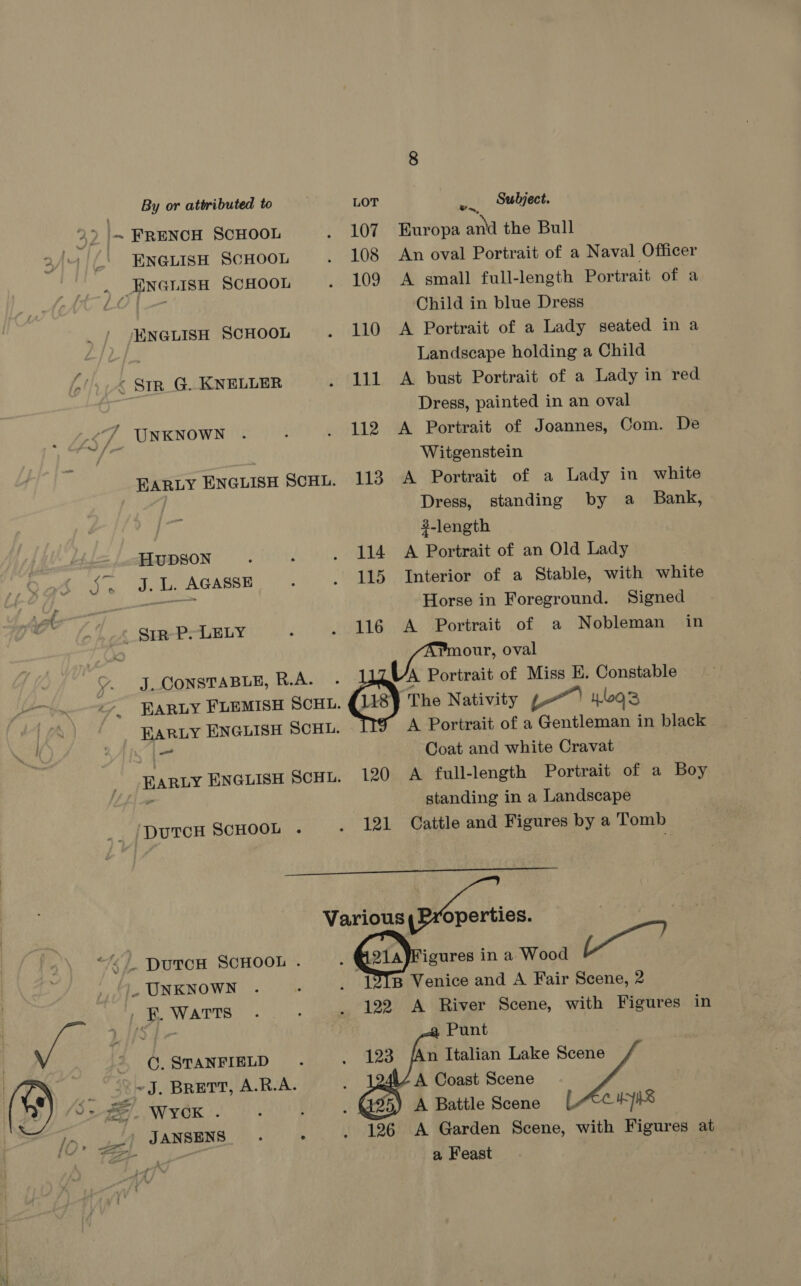 8
By or attributed to LOT Subject.
FRENCH SCHOOL . 107 Europa and the Bull
ENGLISH SCHOOL . 108 An oval Portrait of a Naval Officer
ENGLISH SCHOOL . 109 A small full-length Portrait of a
Child in blue Dress
ENGLISH SCHOOL . 110 A Portrait of a Lady seated in a
Landscape holding a Child
SIR G. KNELLER . 111 A bust Portrait of a Lady in red
Dress, painted in an oval
UNKNOWN . . . 112 A Portrait of Joannes, Com. De
Witgenstein
EARLY ENGLISH SCHL. 113 A Portrait of a Lady in white
Dress, standing by a Bank,
¾-length
HUDSON . . . 114 A Portrait of an Old Lady
J. L. AGASSE . . 115 Interior of a Stable, with white
Horse in Foreground. Signed
SIR P. LELY . . 116 A Portrait of a Nobleman in
Armour, oval
J. CONSTABLE, R.A. . 117 A Portrait of Miss E. Constable
EARLY FLEMISH SCHL. 118 The Nativity
EARLY ENGLISH SCHL. 119 A Portrait of a Gentleman in black
Coat and white Cravat
EARLY ENGLISH SCHL. 120 A full-length Portrait of a Boy
standing in a Landscape
DUTCH SCHOOL . . 121 Cattle and Figures by a Tomb
Various Properties.
DUTCH SCHOOL . . 121A Figures in a Wood
UNKNOWN . . . 121B Venice and A Fair Scene, 2
F. WATTS . . . 122 A River Scene, with Figures in
a Punt
C. STANFIELD . . 123 An Italian Lake Scene
J. BRETT, A.R.A. . 124 A Coast Scene
WYCK . . . . 125 A Battle Scene
JANSENS . . . 126 A Garden Scene, with Figures at
a Feast